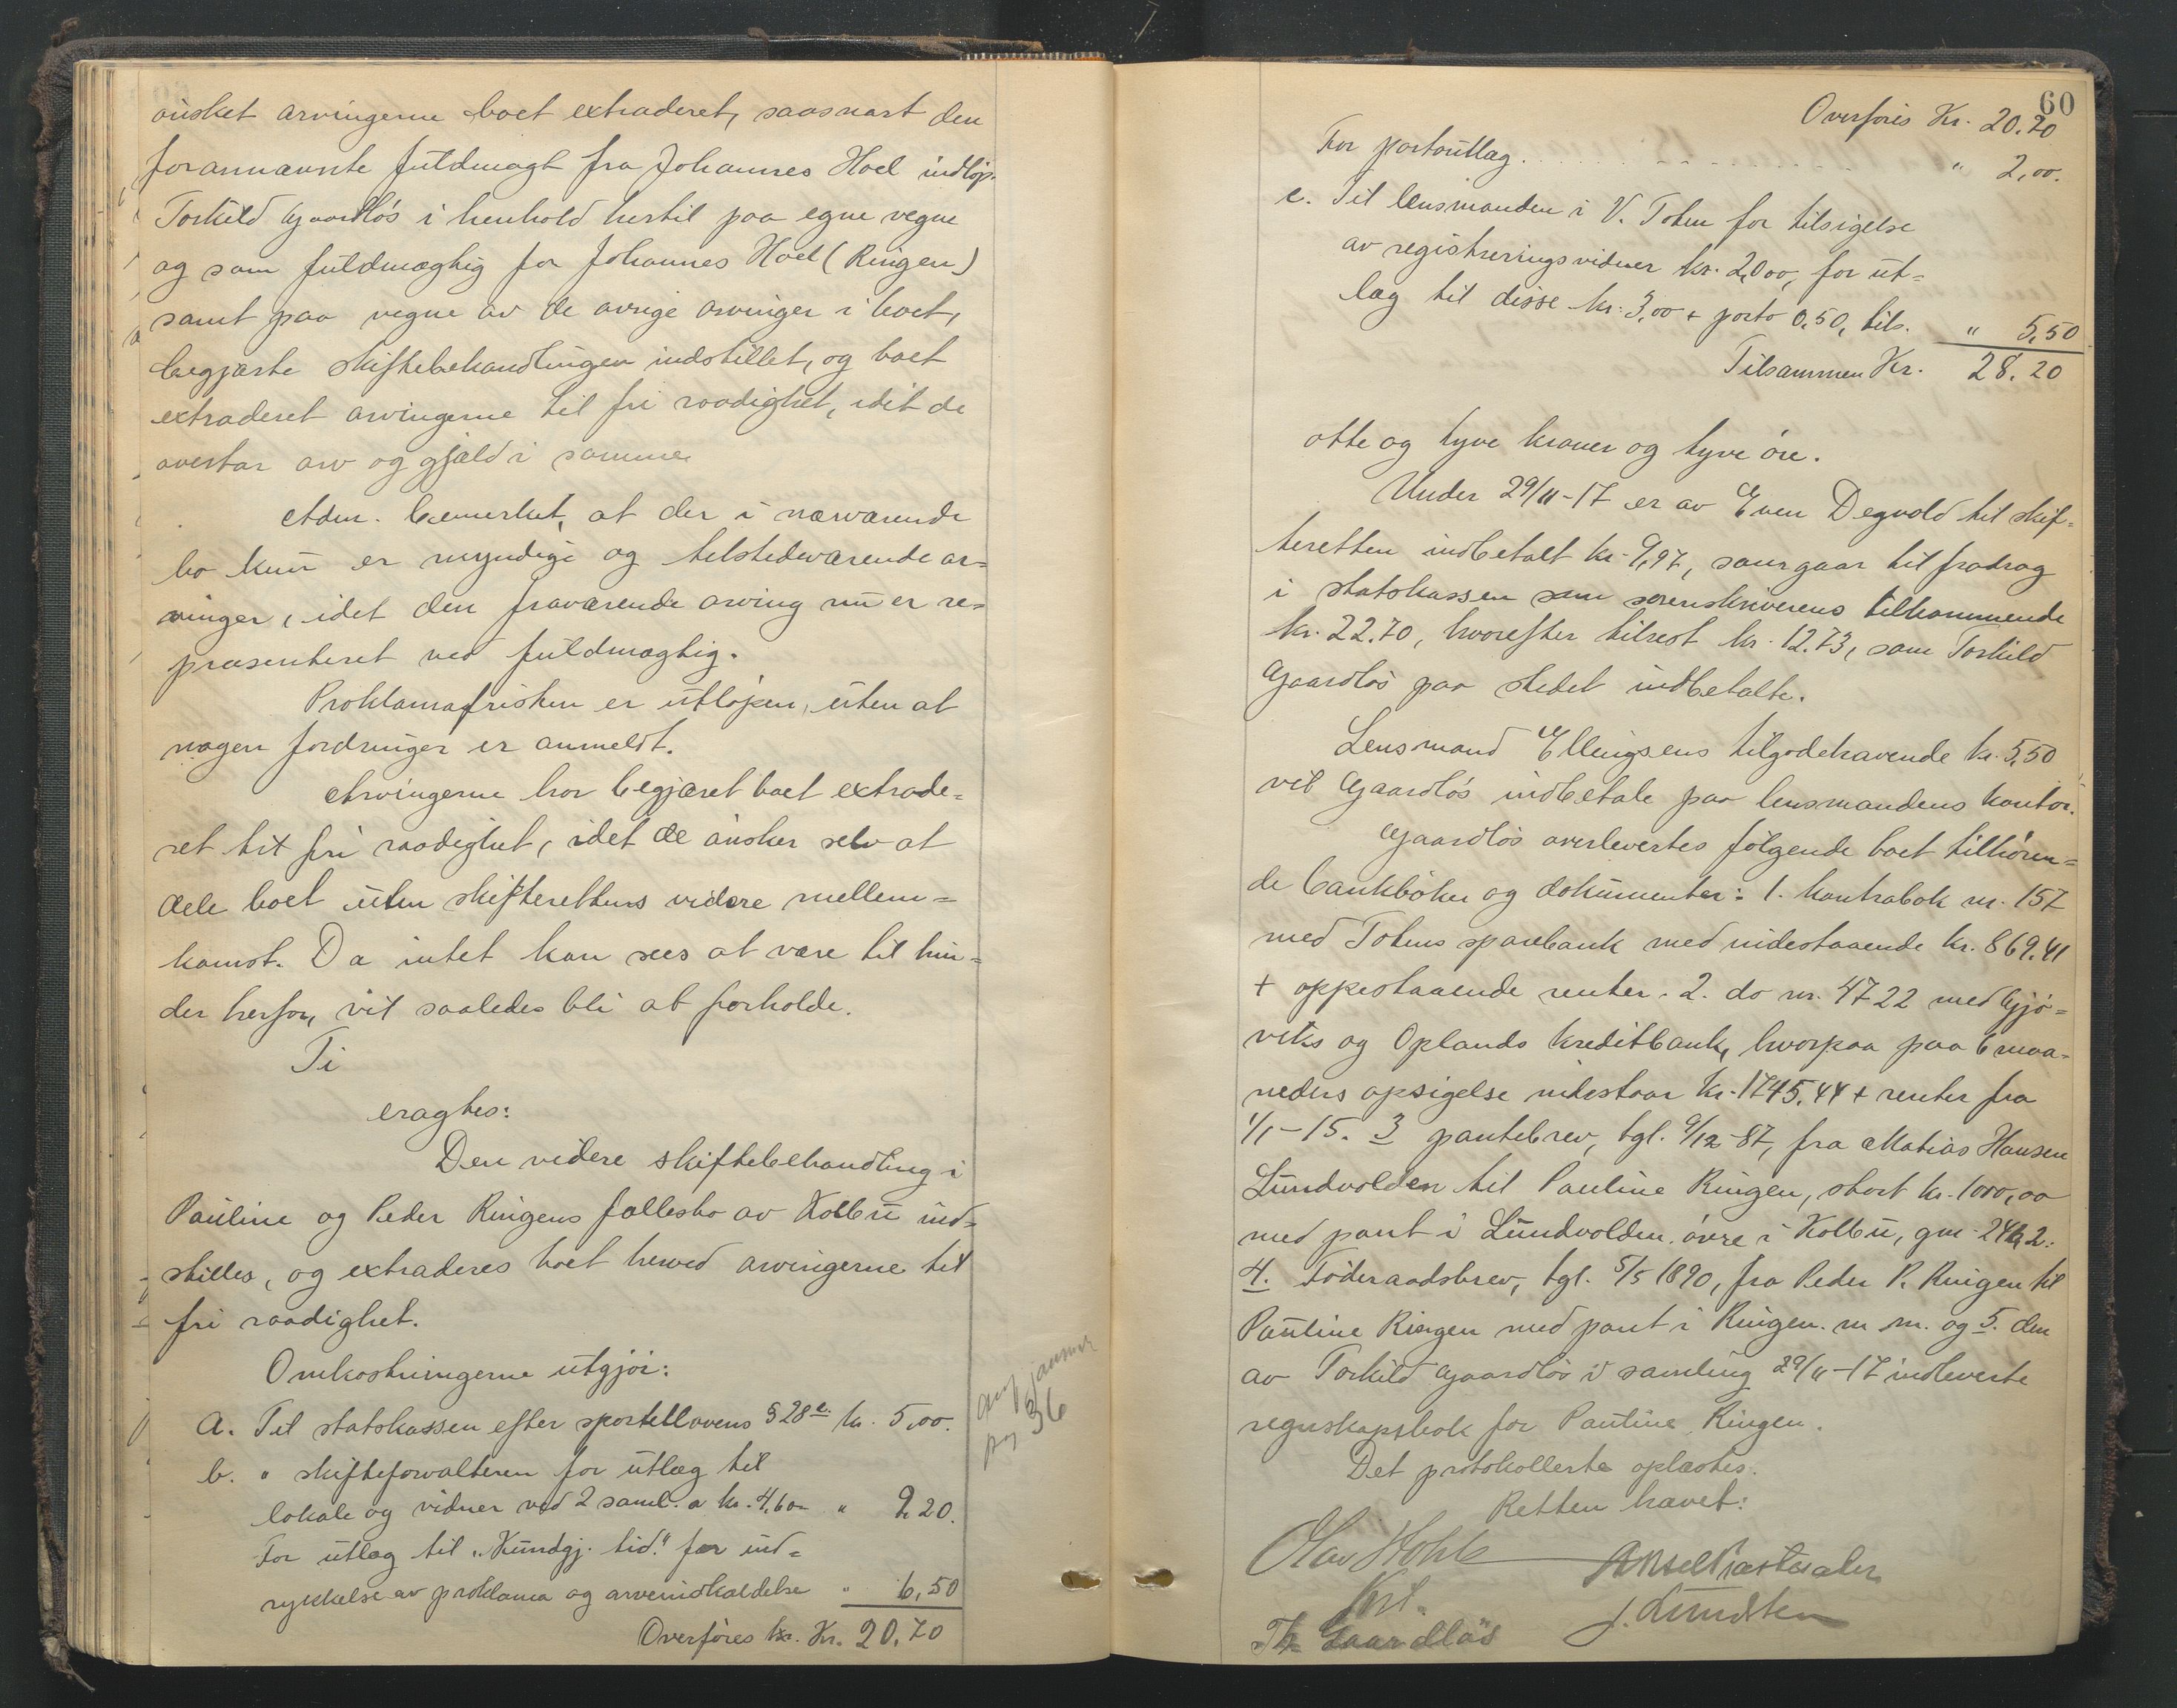 ønsket arvingerne boet extraderet, saasnart den
forannævnte fuldmagt fra Johannes Hoel indløp.
Torkild Gaardløs i henhold hertil paa egne vegne
og som fuldmægtig for Johannes Hoel (Ringen)
samt paa vegne av de øvrige arvinger i boet,
begjærte skiftebehandlingen indstillet, og boet
extraderet arvingerne til fri raadighet, idet de
overtar arv og gjæld i samme.
Adm. bemerket, at der i nærværende
bo kun er myndige og tilstedeværende ar-
vinger, idet den fraværende arving nu er re-
præsenteret ved fuldmægtig.
Proklamafristen er utløpen, uten at
nogen fordringer er anmeldt.
Arvingerne har begjæret boet extrade-
ret til fri raadighet, idet de ønsker selv at
dele boet uten skifterettens videre mellem-
komst. Da intet kan sees at være til hin-
der herfor, vil saaledes bli at forholde.
Ti
eragtes:
Den videre skiftebehandling i
Pauline og Peder Ringens fællesbo av Kolbu ind-
stilles, og extraderes boet herved arvingerne til
fri raadighet.
Omkostningerne utgjør:
a. Til statskassen efter sportellovens § 28 e. kr. 5,00.
b. " skifteforvalteren for utlæg til
lokale og vidner ved 2 saml. a kr. 4,60 " 9,20.
For utlæg til "Kundgj. tid." for ind-
rykkelse av proklama og arveindkaldelse " 6,50
Overføres Kr. 20,70
36
60
Overføres Kr. 20,70
For portoutlæg " 2,00.
c. Til lensmanden i V. Toten for tilsigelse
av registreringsvidner kr. 2,00, for ut-
læg til disse kr. 3,00 + porto 0,50, tils. " 5,50
Tilsammen Kr. 28,20
otte og tyve kroner og tyve øre.
Under 29/11-17 er av Even Degvold til skif-
teretten indbetalt kr. 9,97, som gaar til fradrag
i statskassen som sorenskriverens tilkommende
kr. 22.70, hvorefter tilrest kr. 12.73, som Torkild
Gaardløs paa stedet indbetalte.
Lensmand Ellingsens tilgodehavende kr. 5,50
vil Gaardløs indbetale paa lensmandens kontor.
Gaardløs overlevertes følgende boet tilhøren-
de bankbøker og dokumenter: 1. kontrabok nr. 157
med Totens sparebank med indestaaende kr. 869.41
+ oppestaaende renter. 2. do nr. 4722 med Gjø-
viks og Oplands kreditbank, hvorpaa paa 6 maa-
neders opsigelse indestaar kr. 1745.44 + renter fra
1/1-15. 3 pantebrev, tgl. 9/12-87, fra Matias Hansen
Lundvolden til Pauline Ringen, stort kr. 1000,00
med pant i Lundvolden øvre i Kolbu, gnr. 24 b. 2.
4. Føderaadsbrev, tgl. 5/5 1890, fra Peder P. Ringen til
Pauline Ringen med pant i Ringen m. m. og 5. den
av Torkild Gaardløs i samling 29/11-17 indleverte
regnskapsbok for Pauline Ringen.
Det protokollerte oplæstes.
Retten hævet:
Olav Hohle
Kst.
J. Lundsten
Th Gaardløs